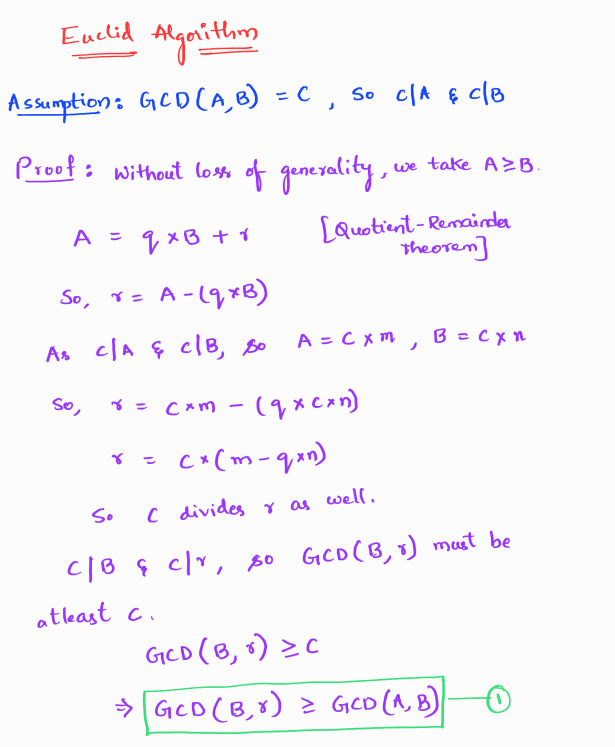 Euclid Algorithm
Assumption: GCD(A,B) = C , So C|A & C|B
Proof: Without loss of generality, we take A≥B.
A = q×B + r [Quotient-Remainder
theorem]
So, r = A-(q×B)
As C|A & C|B, so A = C×m , B = C×n
So, r = C×m - (q×C×n)
r = C×(m-q×n)
So C divides r as well.
C|B & C|r, so GCD(B,r) must be
atleast C.
GCD(B,r) ≥ C
⇒ GCD(B,r) ≥ GCD(A,B) ①